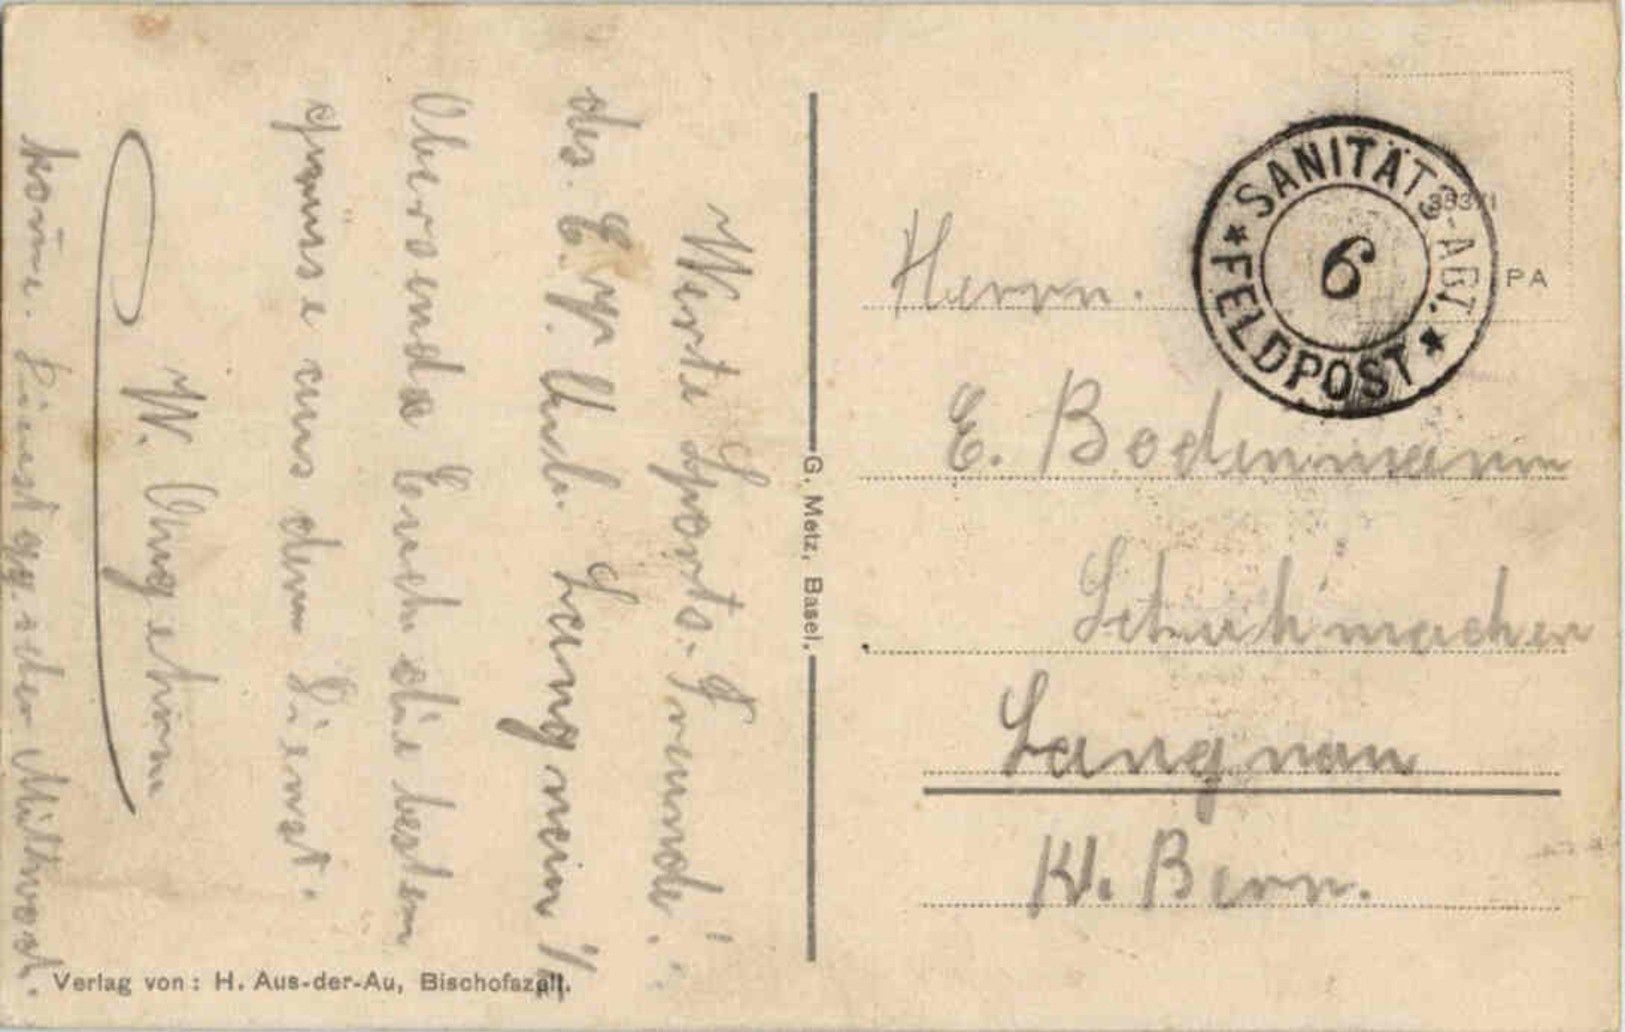 Werte Sports-Freunde!
des E. F. Club. Langnau i/E
Übersende Euch die besten
Grüsse aus dem Dienst.
W.
komme. Dienstag oder Mittwoch.
G. Metz, Basel.
Verlag von: H. Aus-der-Au, Bischofszell.
SANITÄTS-ABT.
6
* FELDPOST *
PA
Herrn.
E. Bodenmann
Schuhmacher
Langnau
Kt. Bern.